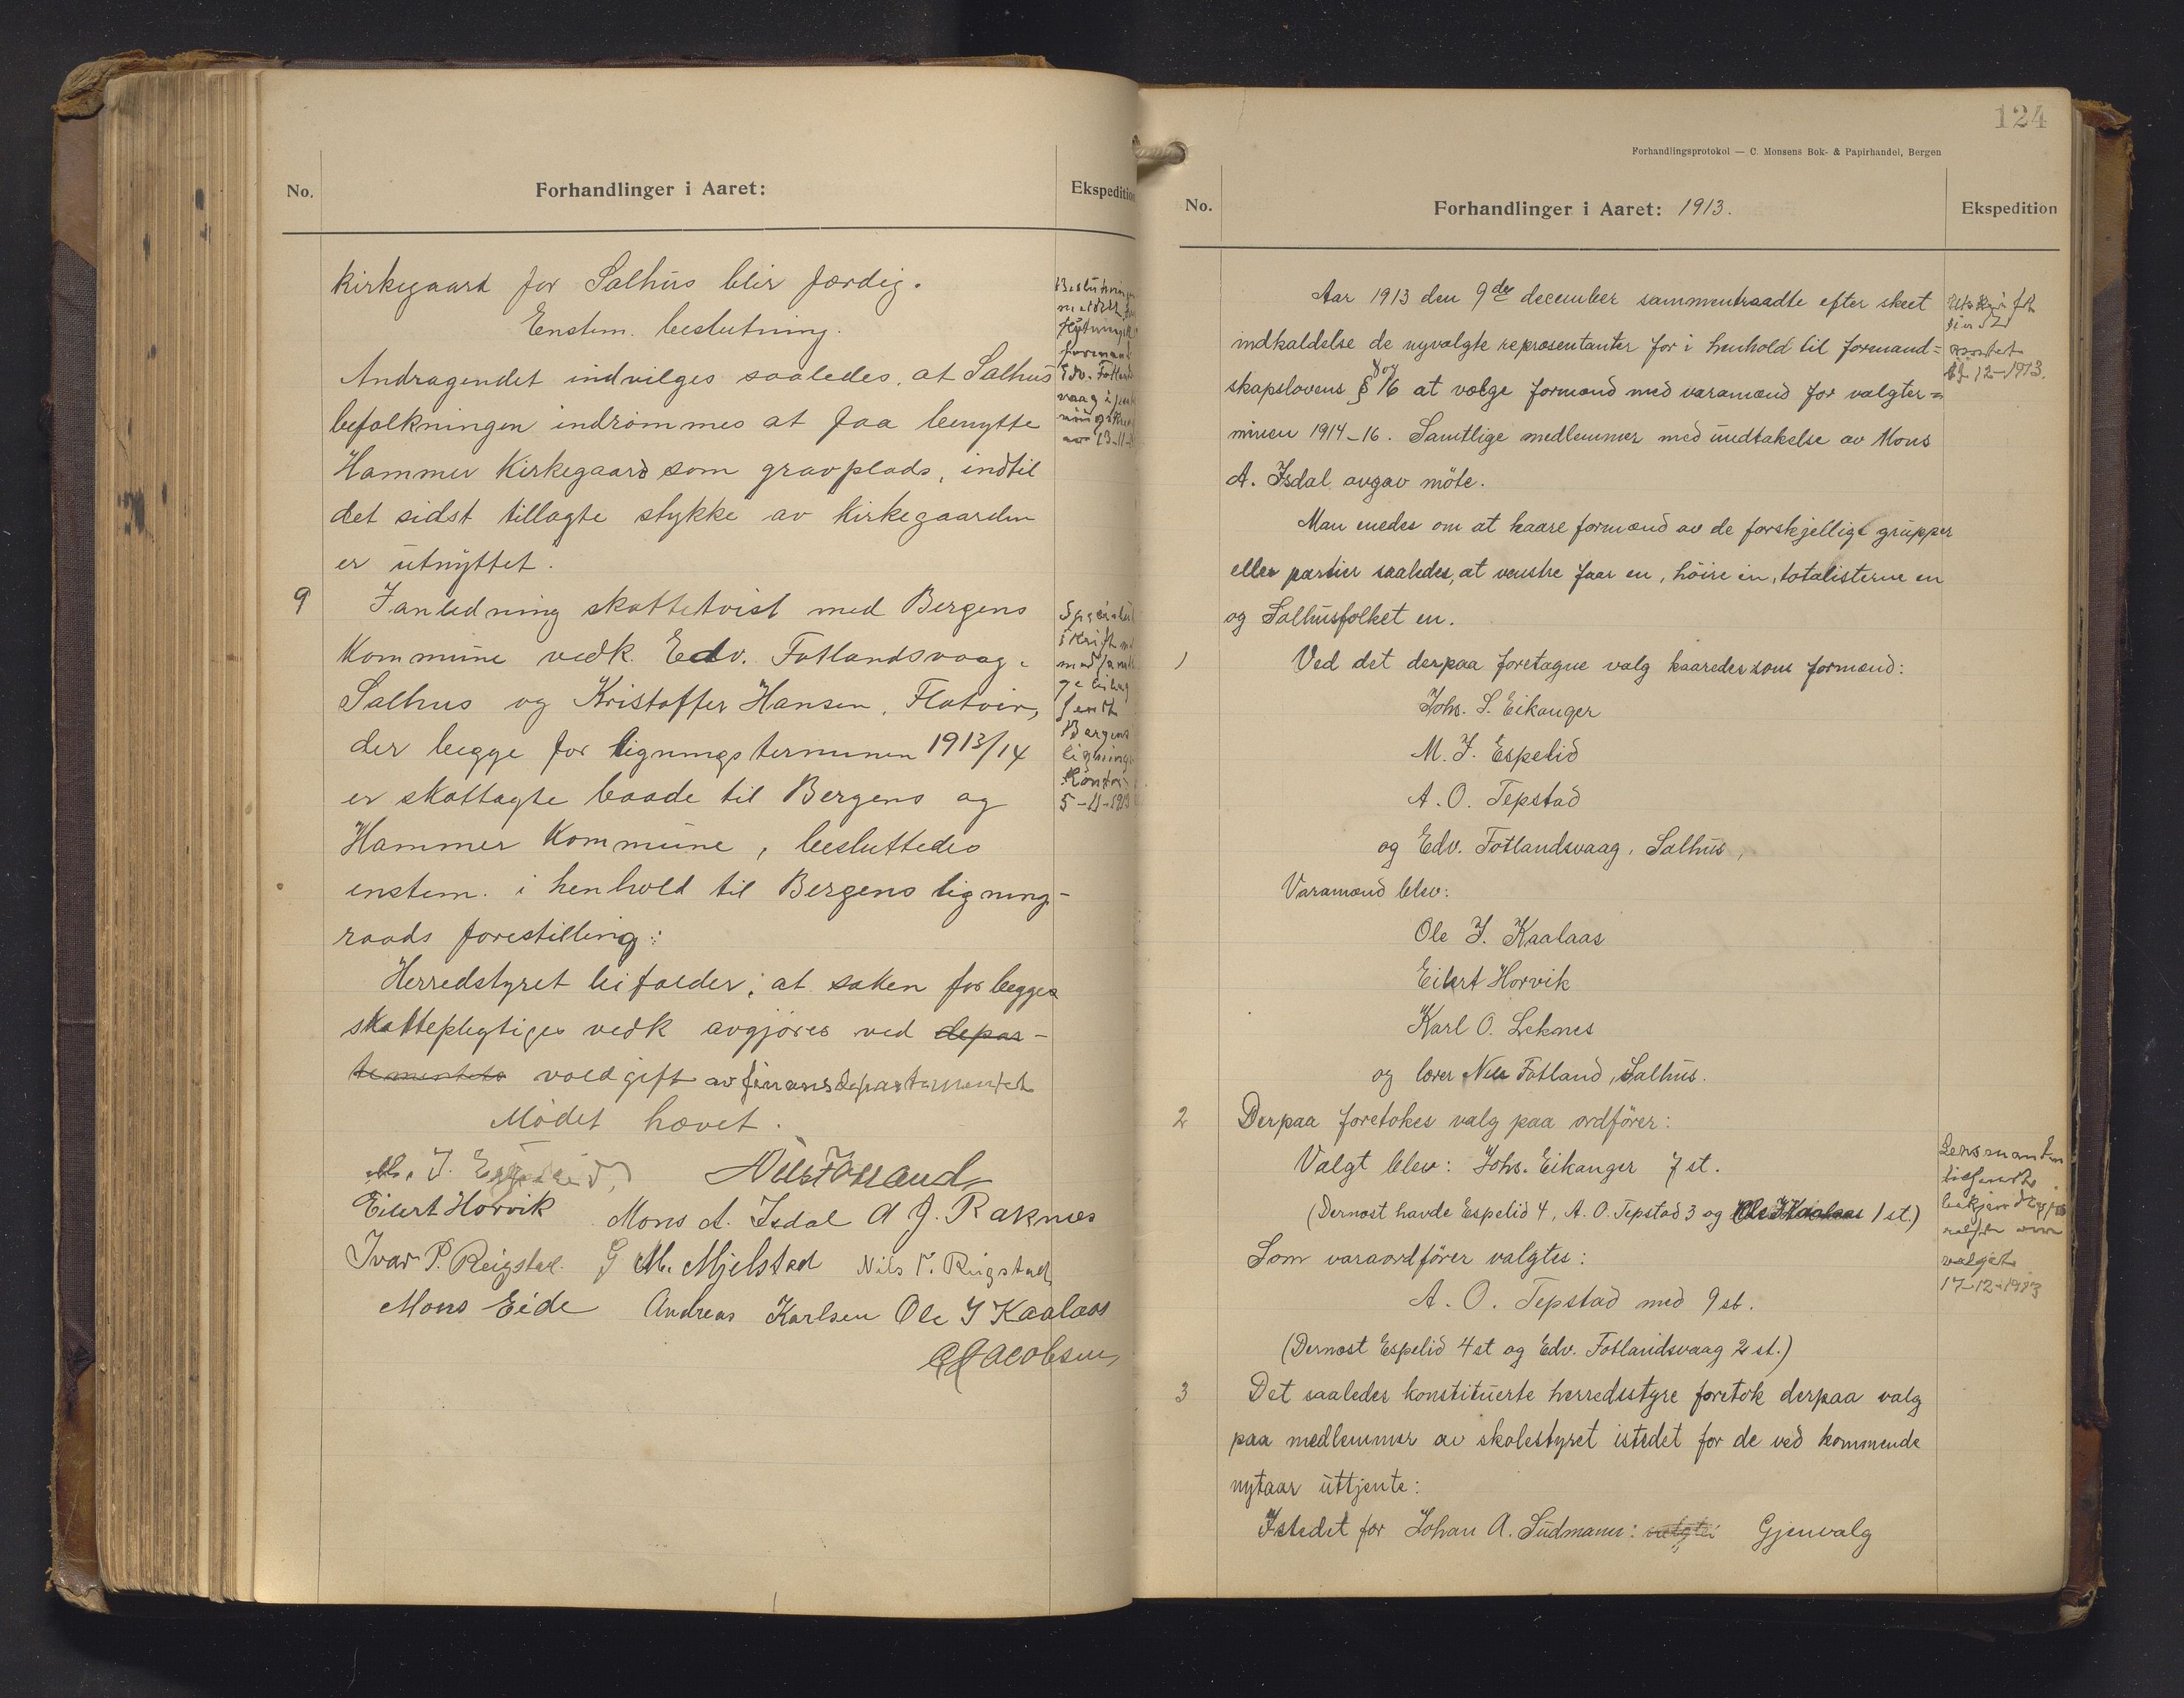 No.
Forhandlinger i Aaret:
Ekspedition
kirkegaard for Salhus blir færdig.
Enstem. beslutning.
Andragendet indvilges saaledes, at Salhus
befolkningen indrømmes at faa benytte
Hammer Kirkegaard som gravplads, indtil
det sidst tillagte stykke av kirkegaarden
er utnyttet.
9 I anledning skattetvist med Bergens
Kommune vedk. Edv. Fotlandsvaag,
Salhus og Kristoffer Hansen, Flatøir,
der begge for ligningsterminen 1913/14
er skattagte baade til Bergens og
Hammer Kommune, besluttedes
enstem. i henhold til Bergens ligning-
raads forestilling:
Herredstyret bifalder, at saken for begges
skattepligtiges vedk avgjøres ved depar-
tementets voldgift av finansdepartementet
Mødet hævet.
M. J. Espelid Nils Fotland
Eilert Horvik Mons A. Isdal A J. Raknes
Ivar P. Reigstad. G M. Mjelstad Nils I. Rigstad
Mons Eide Andreas Karlsen Ole J Kaalaas
Jacobsen
Beslutningen
Edv. Fotlands
vaag i
13-11-
skrift
sendt
Bergens
lignings
Kontor
5-11-1913
124
Forhandlingsprotokol — C. Monsens Bok- & Papirhandel, Bergen
No.
Forhandlinger i Aaret: 1913.
Ekspedition
Aar 1913 den 9de december sammentraadte efter skeet
indkaldelse de nyvalgte repræsentanter for i henhold til formand=
skapslovens § 8 og 16 at vælge formænd med varamænd for valgter=
minen 1914-16. Samtlige medlemmer med undtakelse av Mons
A. Isdal avgav möte.
Man enedes om at kaare formænd av de forskjellige grupper
eller partier saaledes, at venstre faar en, höire en, totalisterne en
og Salhusfolket en.
1 Ved det derpaa foretagne valg kaaredes som formænd:
Johs. S. Eikanger
M. J. Espelid
A. O. Tepstad
og Edv. Fotlandsvaag, Salhus,
Varamænd blev:
Ole J. Kaalaas
Eilert Horvik
Karl O. Leknes
og lærer Nils Fotland, Salhus.
2 Derpaa foretokes valg paa ordförer:
Valgt blev: Johs. Eikanger 7 st.
(Dernæst havde Espelid 4, A. O. Tepstad 3 og Ole J Kaalaas 1 st.)
Som varaordförer valgtes:
A. O. Tepstad med 9 st.
(Dernæst Espelid 4 st og Edv. Fotlandsvaag 2 st.)
3 Det saaledes konstituerte herredsstyre foretok derpaa valg
paa medlemmer av skolestyret istedet for de ved kommende
nytaar uttjente:
Istedet for Johan A. Sudmann: valgtes Gjenvalg
12-1913.
Lensmanden
tilsendt
om
valget
17-12-1913